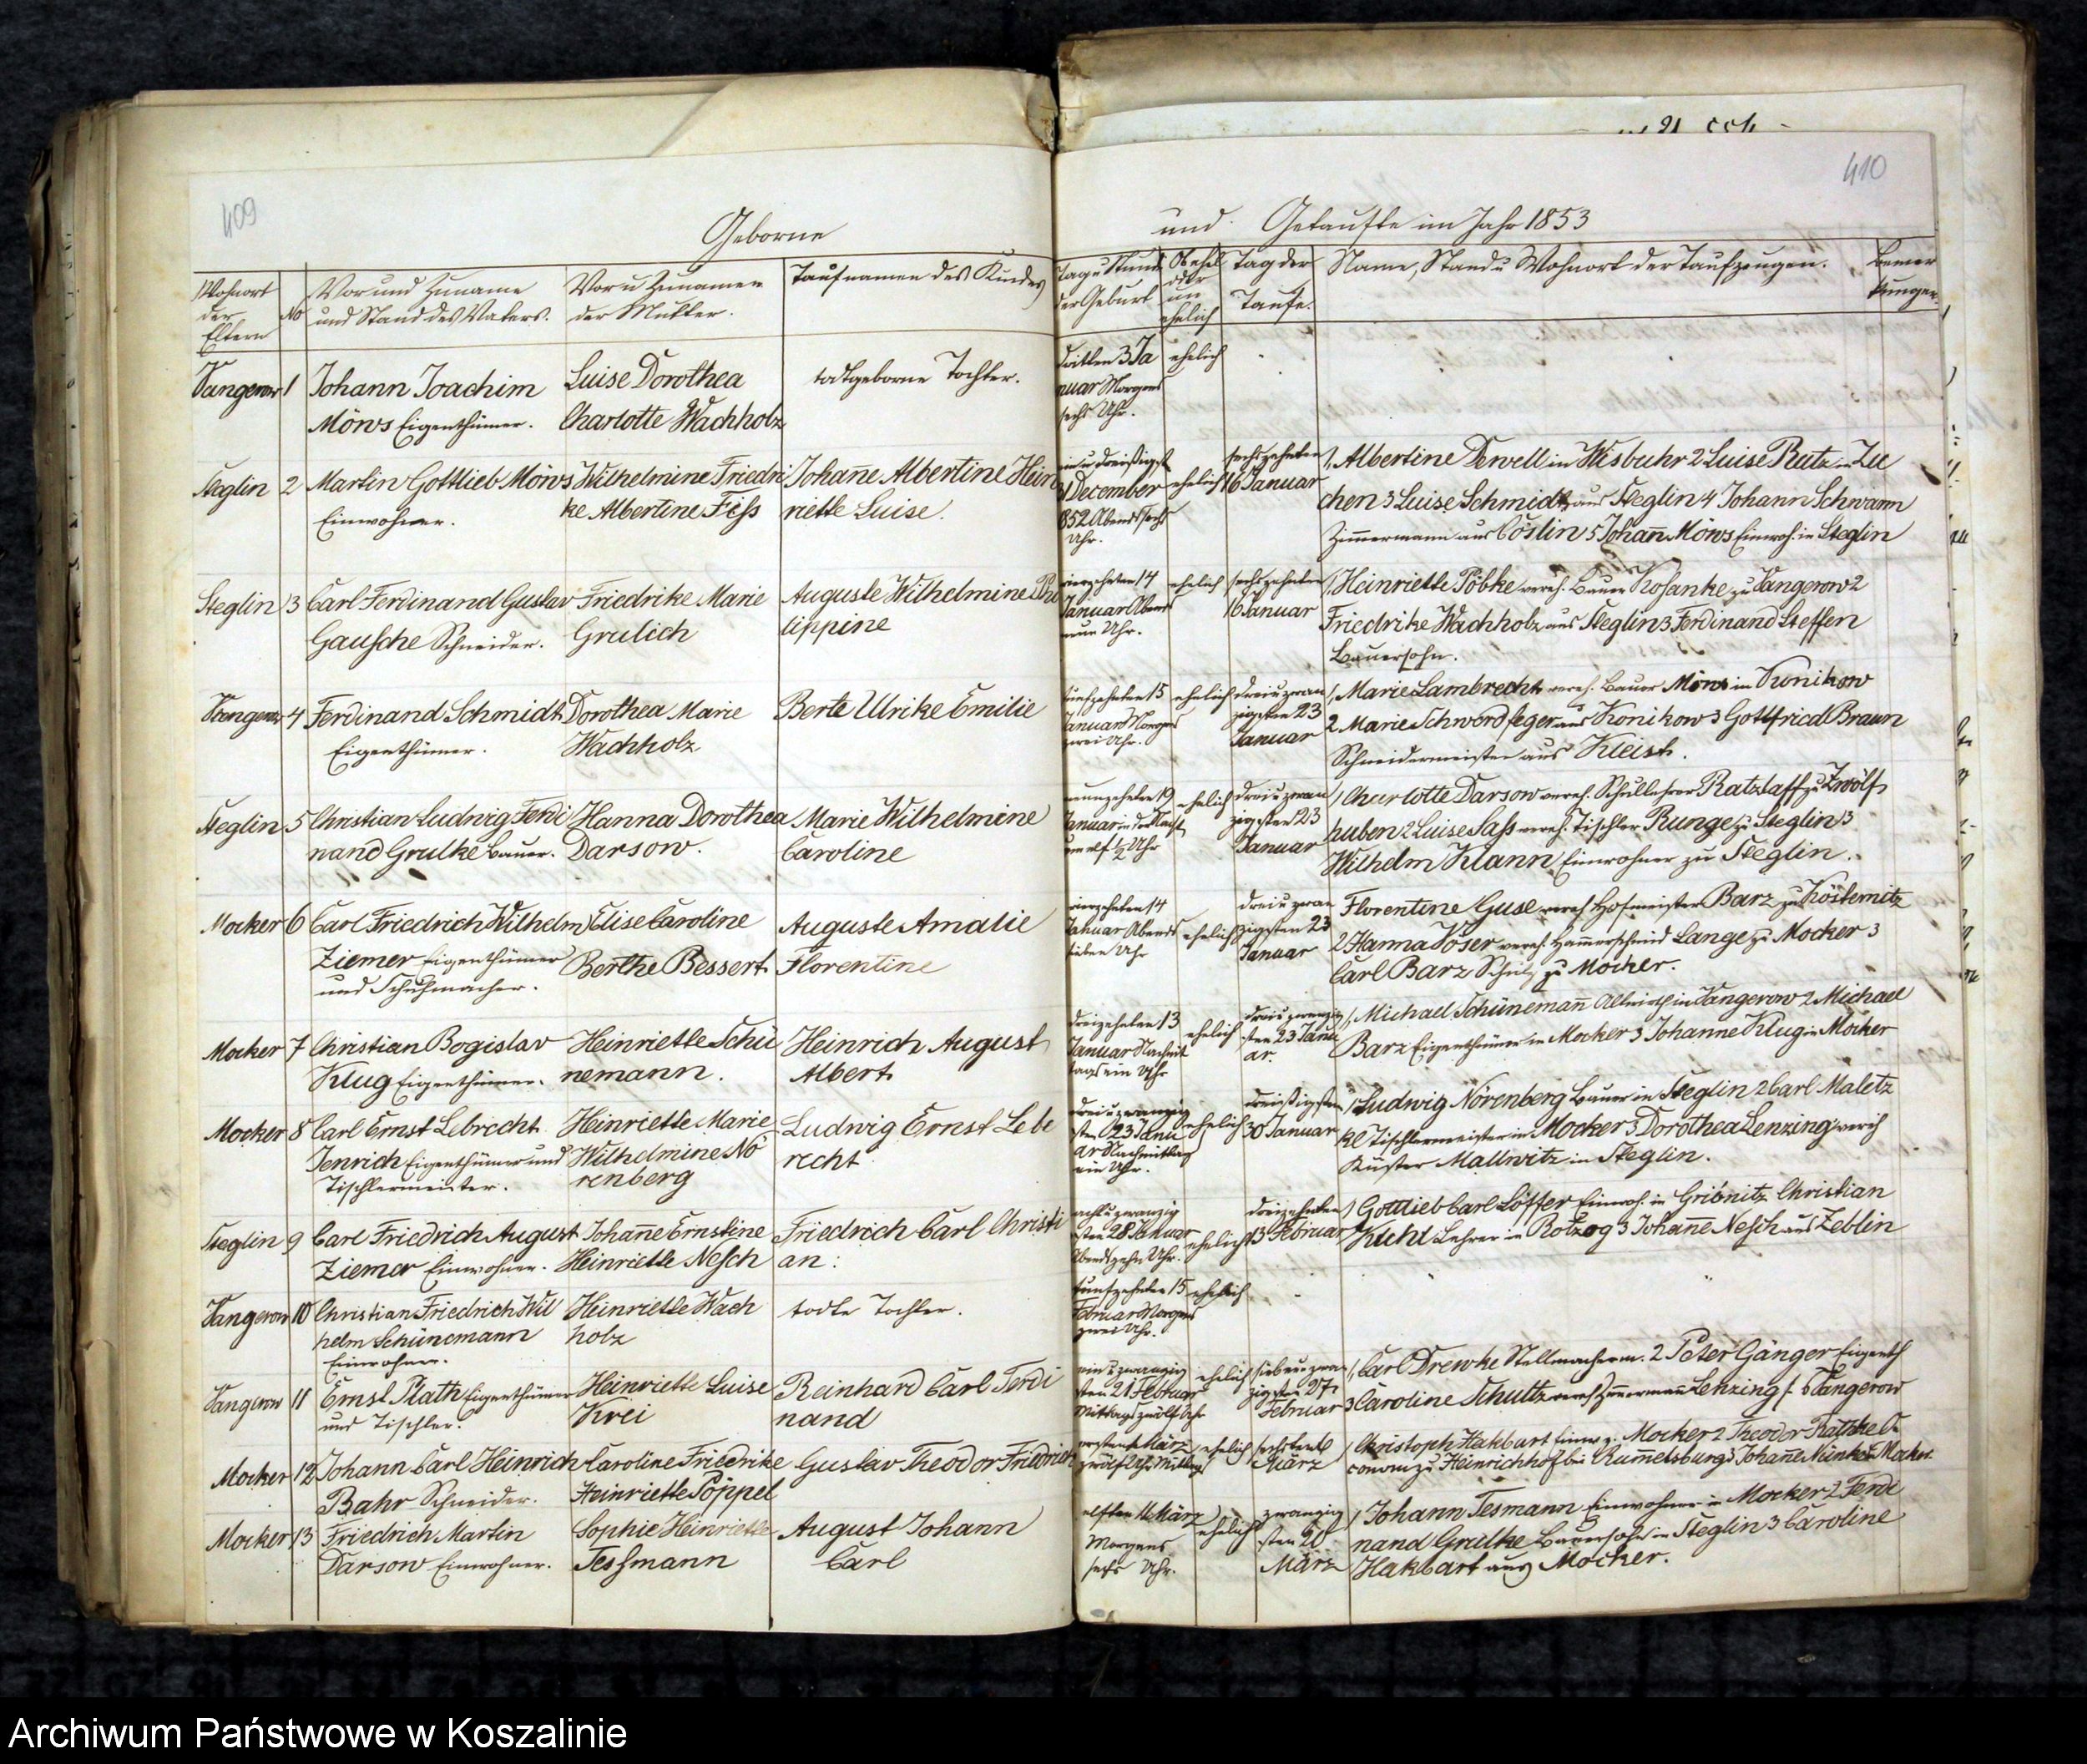 409
410
Geborne
und Getaufte im Jahr 1853
Wohnort der Eltern
No
Vor und Zuname und Stand des Vaters.
Vor u Zunamen der Mutter.
Taufnamen des Kindes
Tag u Stunde der Geburt
Ob ehel oder un ehelich
Tag der Taufe.
Name, Stand u Wohnort der Taufzeugen.
Bemer kungen.
Vangerow 1
Johann Joachim
Möws Eigenthümer.
Luise Dorothea
Charlotte Wachholz
todtgeborne Tochter.
dritten 3 Ja
nuar Morgens
sechs Uhr.
ehelich
Steglin 2
Martin Gottlieb Möws
Einwohner.
Wilhelmine Friedri
ke Albertine Fess
Johane Albertine Hein
riette Luise.
December
852 Abends sechs
Uhr.
ehelich
sechszehnten
16 Januar
1, Albertine Dewell in Wisbuhr 2 Luise Rutz in Zu
chen 3 Luise Schmidt aus Steglin 4 Johann Schwann
Zimmermann aus Cöslin 5 Johann Möws Einwoh. in Steglin
Steglin 3
Carl Ferdinand Gustav
Gausche Schneider.
Friedrike Marie
Grulich
Auguste Wilhelmine Phi
lippine
vierzehnten 14
Januar Abends
neun Uhr.
ehelich
sechszehnten
16 Januar
1, Heinriette Pöbke vereh. Bauer Kosanke zu Vangerow 2
Friedrike Wachholz aus Steglin 3 Ferdinand Steffen
Bauersohn.
Vangerow 4
Ferdinand Schmidt
Eigenthümer.
Dorothea Marie
Wachholz
Berte Ulrike Emilie
fünfzehnten 15
Januar Morgens
zwei Uhr.
ehelich
drei u zwan
zigsten 23
Januar
1, Marie Lambrecht vereh. Bauer Möws in Konikow
2 Marie Schwerdfeger aus Konikow 3 Gottfried Braun
Schneidermeister aus Kleist.
Steglin 5
Christian Ludwig Ferdi
nand Grulke Bauer.
Hanna Dorothea
Darsow.
Marie Wilhelmine
Caroline
neunzehnten 19
Januar in der Nacht
um elf ½ Uhr
ehelich
drei u zwan
zigsten 23
Januar
1 Charlotte Darsow vereh. Schullehrer Ratzlaff zu Zwölf
huben 2 Luise Sass vereh. Tischler Runge zu Steglin 3
Wilhelm Klann Einwohner zu Steglin.
Mocker 6
Carl Friedrich Wilhelm
Ziemer Eigenthümer
und Schuhmacher.
Elise Caroline
Berthe Bessert
Auguste Amalie
Florentine
vierzehnten 14
Januar Abends
sieben Uhr
ehelich
drei u zwan
zigsten 23
Januar
Florentine Guse vereh Hofmeister Barz zu Kösternitz
2 Hanna Voser vereh. Hammerschmid Lange zu Mocker 3
Carl Barz Schulz zu Mocker.
Mocker 7
Christian Bogislav
Klug Eigenthümer.
Heinriette Schü
nemann.
Heinrich August
Albert
dreizehnten 13
Januar Nachmit
tags ein Uhr
ehelich
drei u zwanzig
sten 23 Janu
ar.
1, Michael Schünemann Altsitz in Vangerow 2 Michael
Barz Eigenthümer in Mocker 3 Johanne Klug in Mocker
Mocker 8
Carl Ernst Lebrecht
Jenrich Eigenthümer und
Tischlermeister.
Heinriette Marie
Wilhelmine Nö
renberg
Ludwig Ernst Lebe
recht
drei u zwanzig
sten 23 Janu
ar Nachmittag
ein Uhr.
ehelich
dreißigsten
30 Januar
1 Ludwig Nörenberg Bauer in Steglin 2 Carl Maletz
ke Tischlermeister in Mocker 3 Dorothea Lenzing vereh
Küster Mallwitz in Steglin.
Steglin 9
Carl Friedrich August
Ziemer Einwohner.
Johane Ernstine
Heinriette Nesch
Friedrich Carl Christi
an:
acht u zwanzig
sten 28 Januar
Abends zehn Uhr.
ehelich
dreizehnten
13 Februar
1 Gottlieb Carl Löffer Einwoh. in Gribnitz Christian
Kuhl Lehrer in Rotzog 3 Johane Nesch aus Zeblin
Vangerow 10
Christian Friedrich Wil
helm Schünemann
Einwohner.
Heinriette Wach
holz
todte Tochter.
fünfzehnten 15
Februar Morgens
zwei Uhr.
ehelich
Vangerow 11
Ernst Plath Eigenthümer
und Tischler.
Heinriette Luise
Krei
Reinhard Carl Ferdi
nand
ein u zwanzig
sten 21 Februar
Mittags zwölf Uhr
ehelich
sieben u zwan
zigsten 27
Februar
1, Carl Drewke Stellmacherm. 2 Peter Gänger Eigenth
3 Caroline Schultz vereh Zimmermann Lenzing
Vangerow
Mocker 12
Johann Carl Heinrich
Bahr Schneider.
Caroline Friedrike
Heinriette Pöppel
Gustav Theodor Friedrich
ersten 1 März
zwölf Uhr Mittag
ehelich
sechsten 6
März
1 Christoph Hakbart Einw. z. Mocker 2 Theodor Rathke Oe
conom zu Heinrichhof bei Rummelsburg 3 Johane
Mocker
Mocker 13
Friedrich Martin
Darsow Einwohner.
Sophie Heinriette
Tessmann
August Johann
Carl
elften 11 März
Morgens
sechs Uhr.
ehelich
zwanzig
sten 20
März
1 Johann Tesmann Einwohner in Mocker 2 Ferdi
nand Grulke Bauersohn in Steglin 3 Caroline
Hakbart aus Mocker.
Archiwum Państwowe w Koszalinie